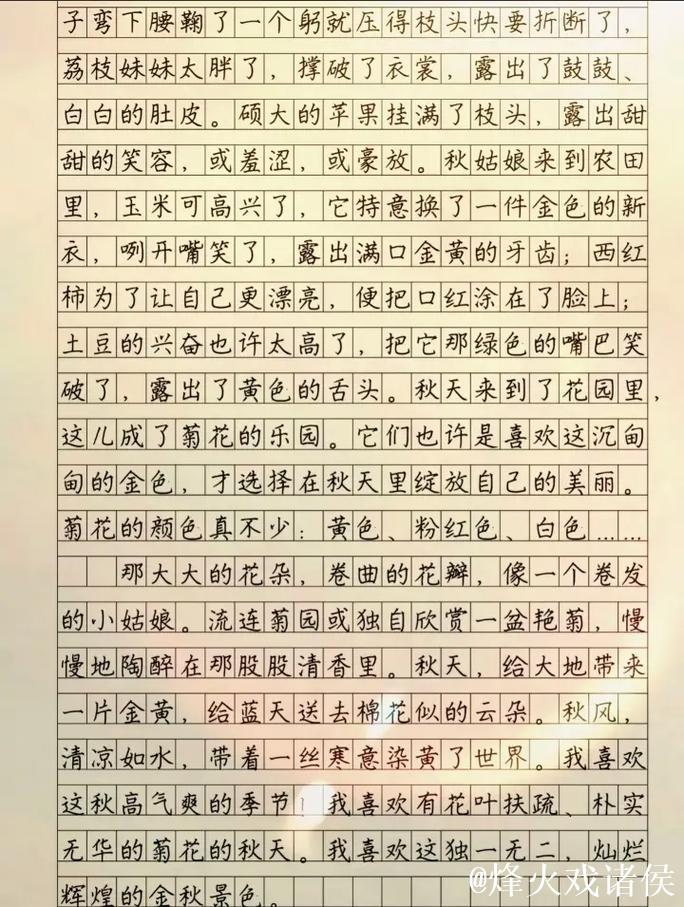 子弯下腰鞠了一个躬就压得枝头快要折断了，
荔枝妹妹太胖了，撑破了衣裳，露出了鼓鼓、
白白的肚皮。硕大的苹果挂满了枝头，露出甜
甜的笑容，或羞涩，或豪放。秋姑娘来到农田
里，玉米可高兴了，它特意换了一件金色的新
衣，咧开嘴笑了，露出满口金黄的牙齿；西红
柿为了让自己更漂亮，便把口红涂在了脸上；
土豆的兴奋也许太高了，把它那绿色的嘴巴笑
破了，露出了黄色的舌头。秋天来到了花园里，
这儿成了菊花的乐园。它们也许是喜欢这沉甸
甸的金色，才选择在秋天里绽放自己的美丽。
菊花的颜色真不少：黄色、粉红色、白色……
那大大的花朵，卷曲的花瓣，像一个卷发
的小姑娘。流连菊园或独自欣赏一盆艳菊，慢
慢地陶醉在那股股清香里。秋天，给大地带来
一片金黄，给蓝天送去棉花似的云朵。秋风，
清凉如水，带着一丝寒意染黄了世界。我喜欢
这秋高气爽的季节！我喜欢有花叶扶疏、朴实
无华的菊花的秋天。我喜欢这独一无二，灿烂
辉煌的金秋景色。
@烽火戏诸侯